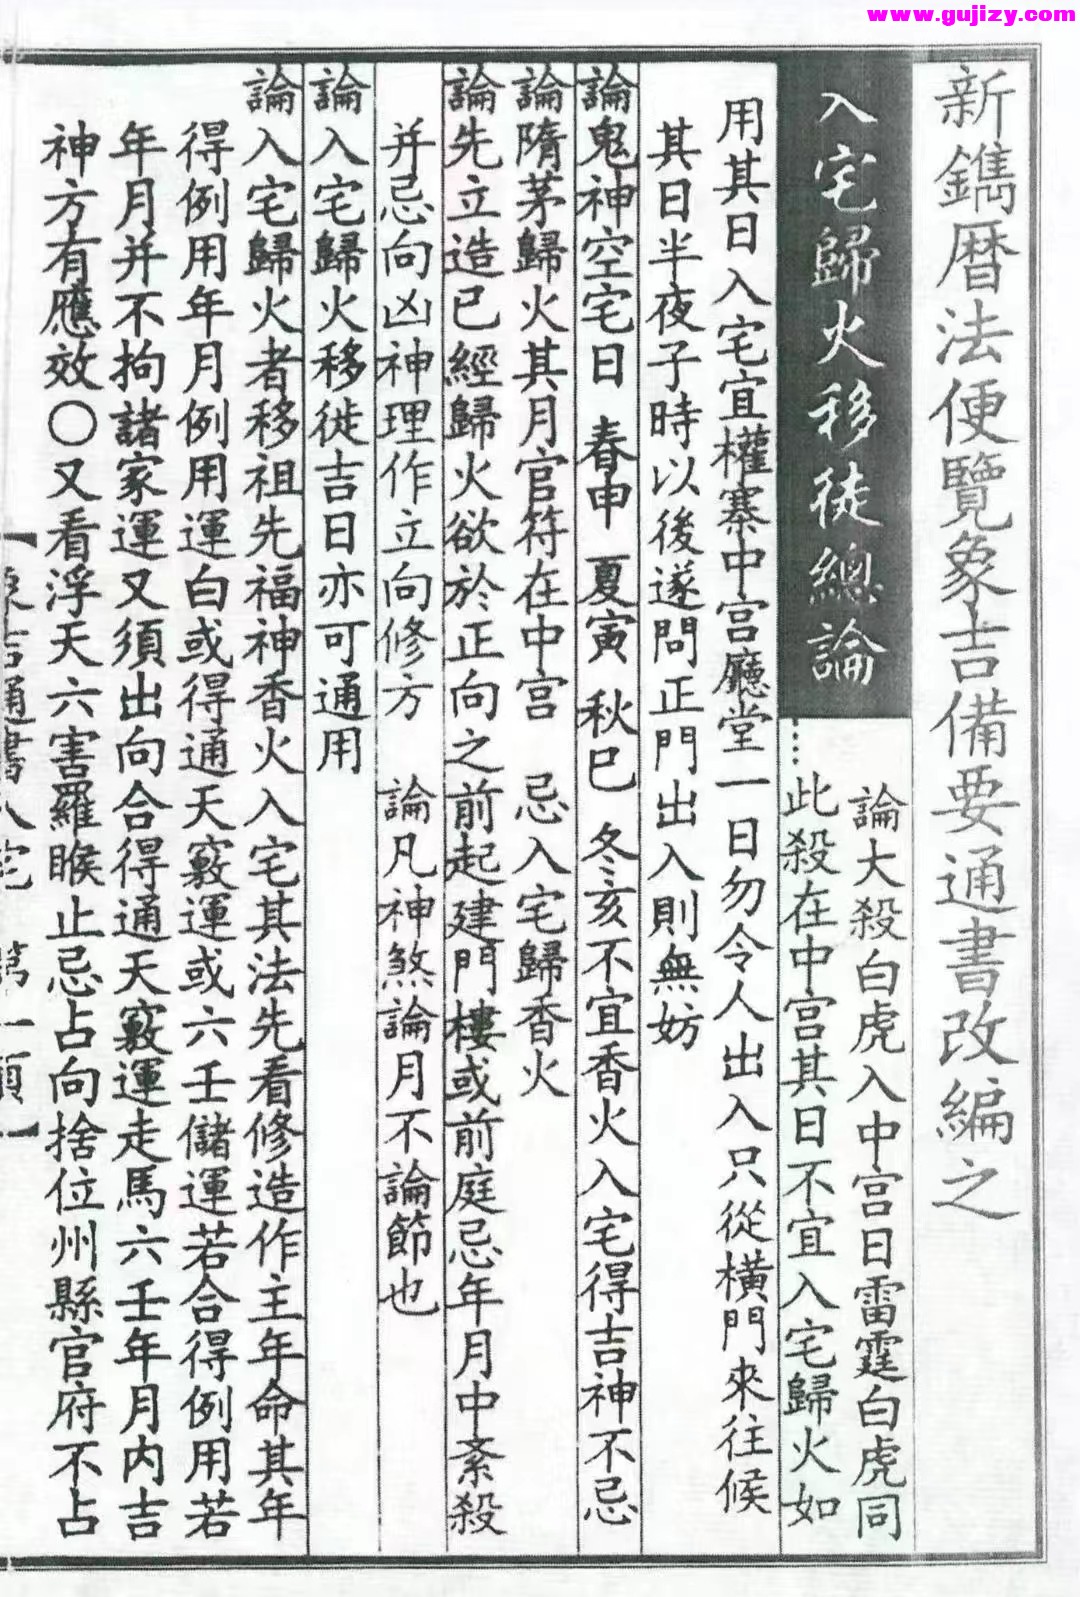 www.gujizy.com
新鐫曆法便覽象吉備要通書改編之
入宅歸火移徒總論
論大殺白虎入中宮日雷霆白虎同
此殺在中宮其日不宜入宅歸火如
用其日入宅宜權寨中宮廳堂一日勿令人出入只從橫門來往候
其日半夜子時以後遂問正門出入則無妨
論鬼神空宅日 春申 夏寅 秋巳 冬亥不宜香火入宅得吉神不忌
論隋茅歸火其月官符在中宮 忌入宅歸香火
論先立造已經歸火欲於正向之前起建門樓或前庭忌年月中紊殺
并忌向凶神理作立向修方 論凡神煞論月不論節也
論入宅歸火移徙吉日亦可通用
論入宅歸火者移祖先福神香火入宅其法先看修造作主年命其年
得例用年月例用運白或得通天竅運或六壬儲運若合得例用若
年月并不拘諸家運又須出向合得通天竅運走馬六壬年月内吉
神方有應效〇又看浮天六害羅睺止忌占向捨位州縣官府不占